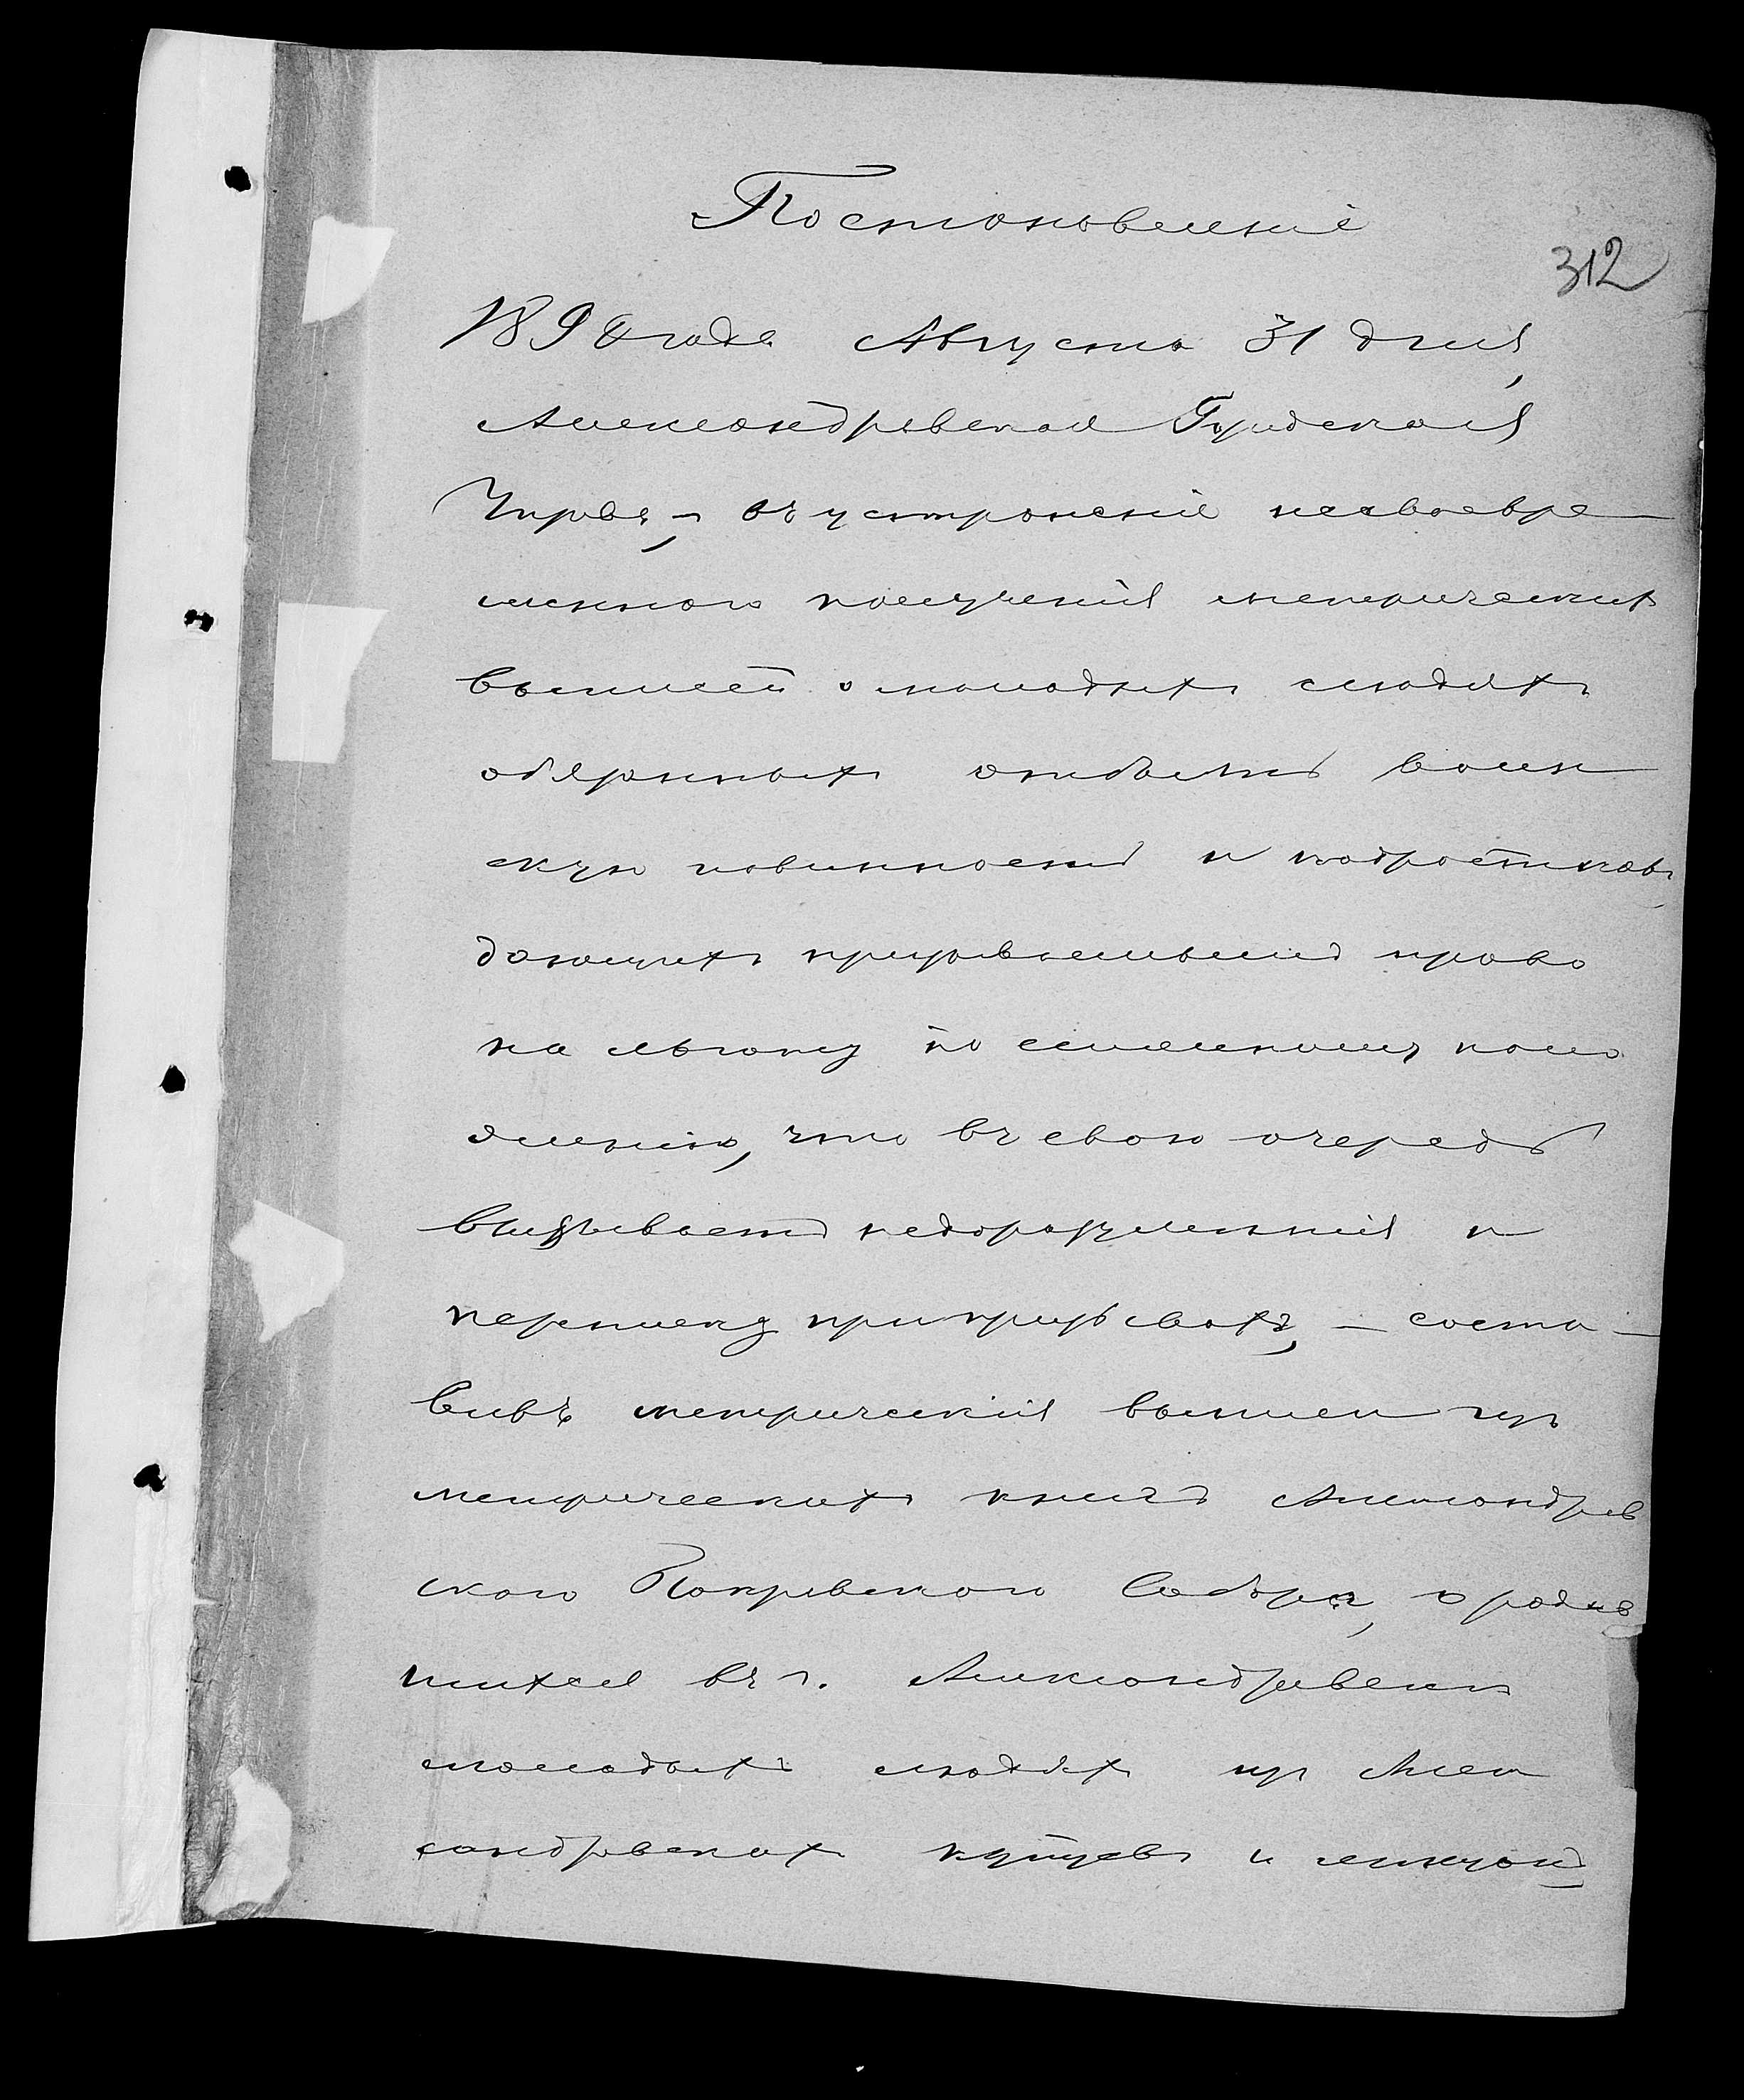 Постановленіе
312
189 года Августа 31 дня,
Александровская Городская
Управа, – въ устраненіе несвоевре–
меннаго полученія метрическихъ
выписей о молодыхъ людяхъ
обязанныхъ отбывать воин
скую повинность и подростковъ,
дающихъ призываемымъ право
на льготу по семейному поло
женію, что въ свою очередь
вызываетъ недоразуменія и
переписку при призывахъ, – соста–
вивъ метрическія выписи изъ
метрическихъ книгъ Александров
скаго Покровскаго Собора, о родив
шихся въ г. Александровске
молодыхъ людяхъ изъ Алек
сандровскихъ купцовъ и мещанъ